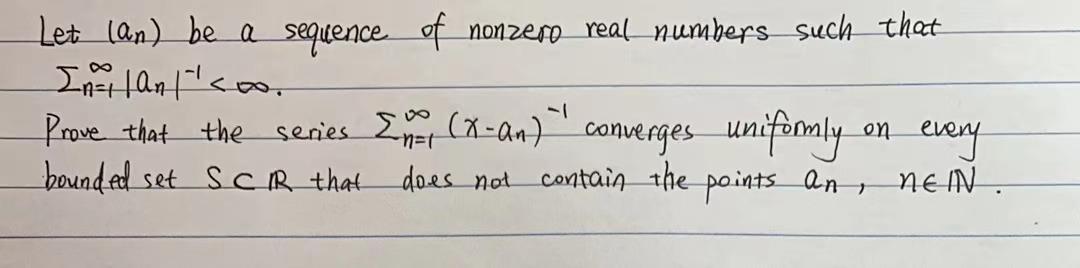 Let (an) be a sequence of nonzero real numbers such that
∑n=1^∞ |an|^-1 < ∞.
Prove that the series ∑n=1^∞ (x-an)^-1 converges uniformly on every
bounded set S⊂ℝ that does not contain the points an, n∈ℕ.